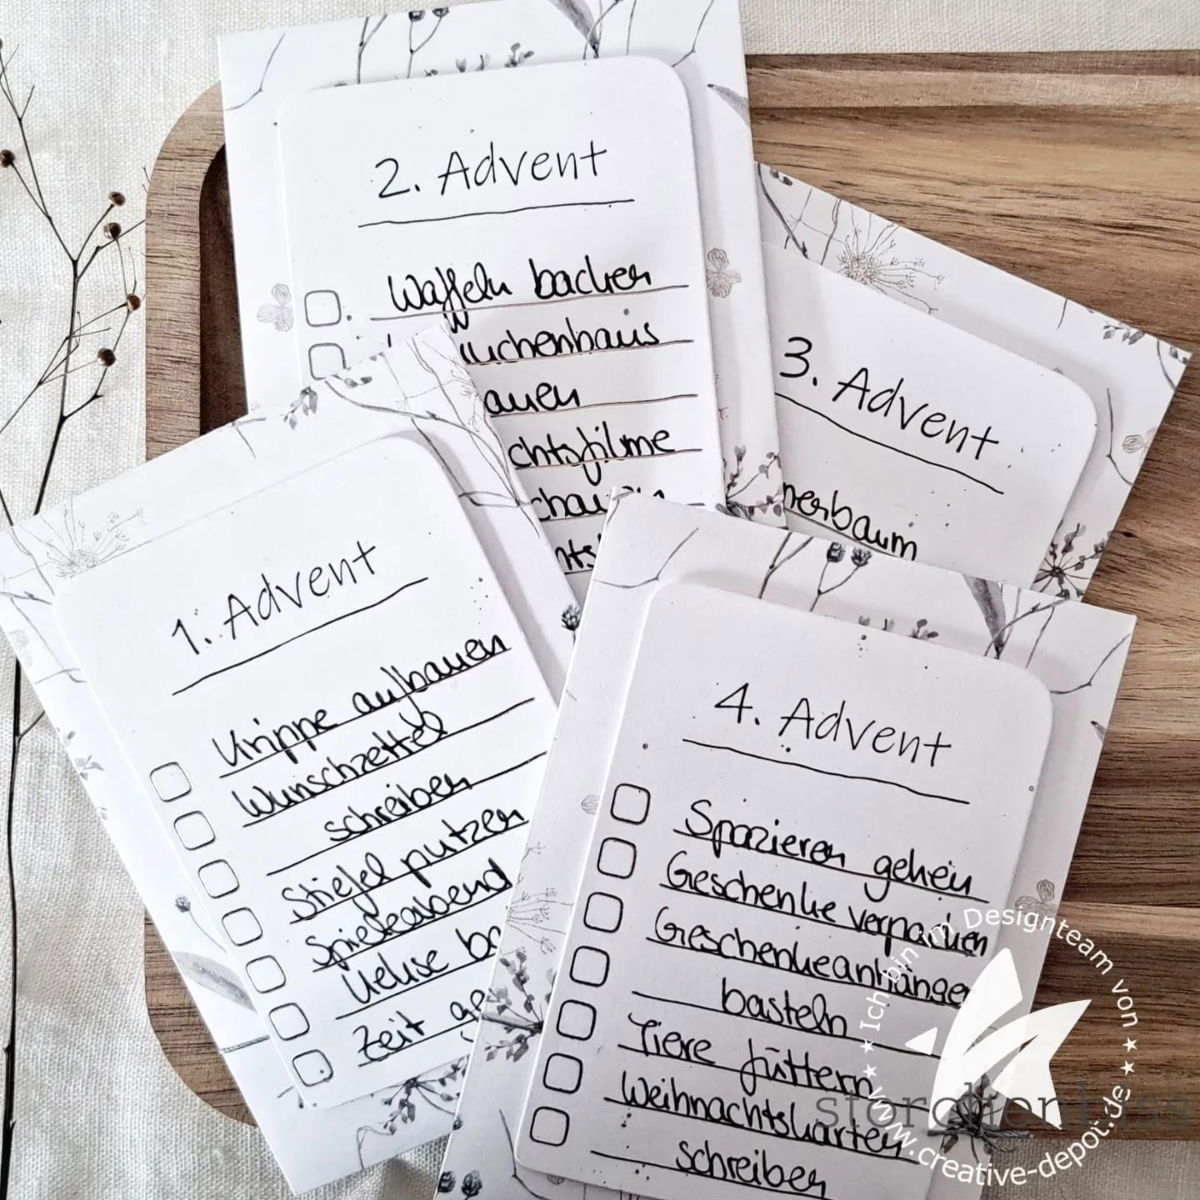 2. Advent
Waffeln backen
uchenhaus
auen
chtsfilme
chauen
hts
3. Advent
nerbaum
1. Advent
Krippe aufbauen
Wunschzettel
schreiben
Stiefel putzen
Spieleabend
Kekse ba
Zeit ge
4. Advent
Spazieren gehen
Geschenke verpacken
Geschenkeanhänger
basteln
Tiere füttern
Weihnachtskarten
schreiben
★ Ich bin im Designteam von ★
★ www.creative-depot.de ★